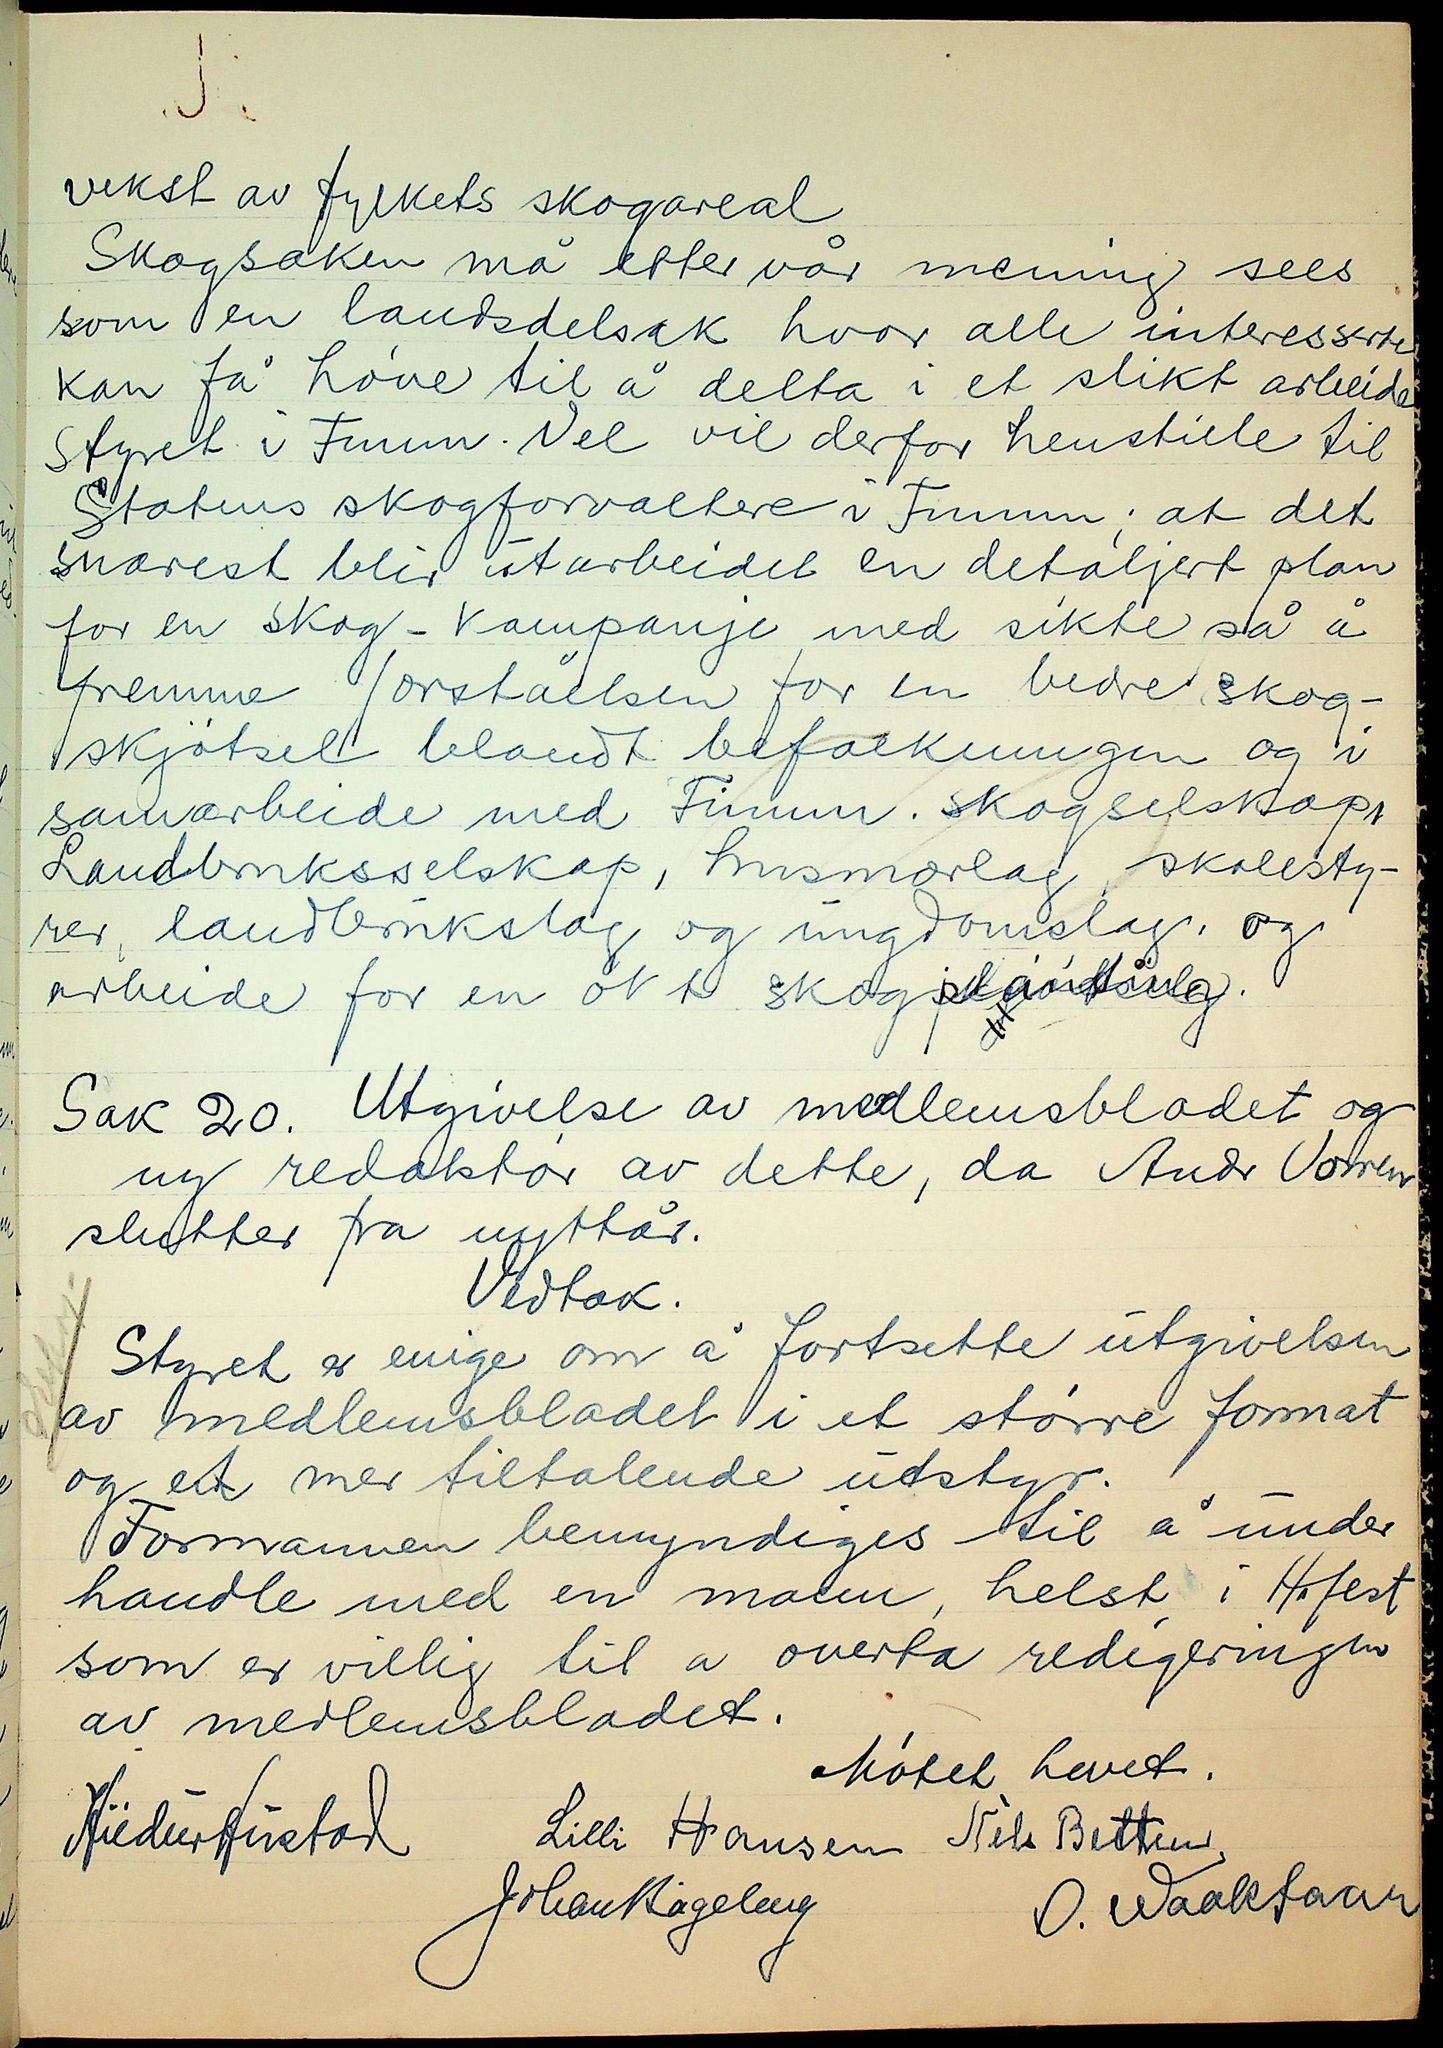 J.
vekst av fylkets skogareal
Skogsaken må etter vår mening sees
som en landsdelsak hvor alle interesserte
kan få höve til å delta i et slikt arbeide
Styret i Finnm. Vel vil derfor henstille til
Statens skogforvaltere i Finnm; at det
snarest blir utarbeidet en detaljert plan
for en skog-kampanje med sikte på å
fremme forståelsen for en bedre skog-
skjötsel blandt befolkningen og i
samarbeide med Finnm. skogselskap,
Landbruksselskap, husmorlag, skolesty-
rer, landbrukslag og ungdomslag. og
arbeide for en økt skogplanting.
Sak 20. Utgivelse av medlemsbladet og
ny redaktör av dette, da Andr Vorren
slutter fra nyttår.
Vedtak.
Styret er enige om å fortsette utgivelsen
av medlemsbladet i et större format
og et mer tiltalende utstyr.
Formannen bemyndiges til å under
handle med en mann, helst i H.fest
som er villig til a overta redigeringen
av medlemsbladet.
Mötet hevet.
Hustad Lilli Hansen Nils
Johan O. Waaktaar